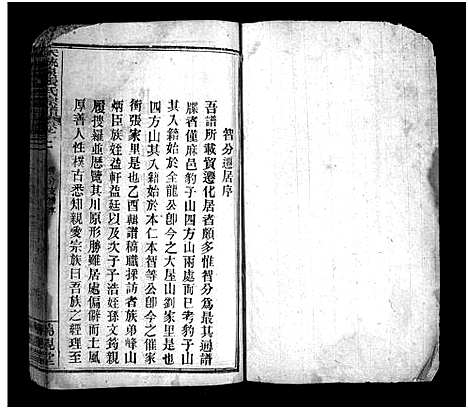 智分遷居序
吾譜所載貿遷化居者頗多惟智分為最其通譜
牒者僅麻邑豹子山四方山兩處而已考豹子山
其入籍始於全龍公即今之大屋山劉家里是也
四方山其入籍始於本仁本智等公即今之催家
衝張家里是也乙酉輯譜稿職採訪者族弟峰山
炳臣族姪益軒益廷以及次子子浩姪孫文筠親
履搜羅並歷覽其川原形勝雖居處偏僻而土風
厚善人性樸古悉知親愛宗族曰吾族之經理至